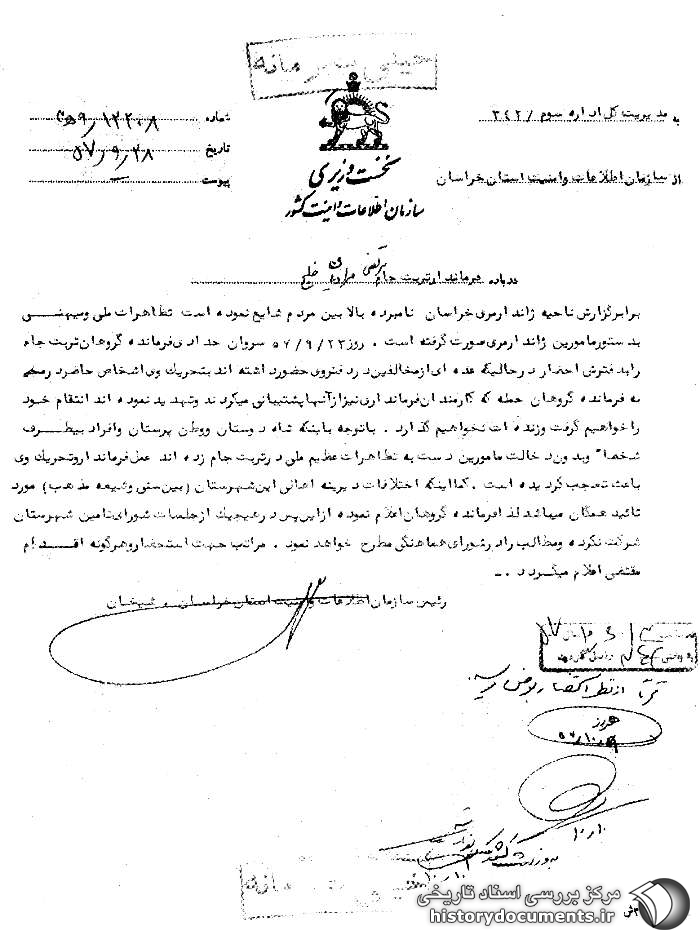 خیلی محرمانه
به مدیریت کل اداره سوم / ۳۴۲
شماره ۱۲۲۰۸/ ۵۹
از سازمان اطلاعات وامنیت استان خراسان
تاریخ ۵۷/۹/۲۸
پیوست —
نخست وزیری
سازمان اطلاعات و امنیت کشور
درباره فرماندار تربت جام مرتضی خلج
برابر گزارش ناحیه ژاندارمری خراسان نامبرده بالا بین مردم شایع نموده است تظاهرات ملی ومیهنی
بدستور مامورین ژاندارمری صورت گرفته است . روز ۵۷/۹/۲۳ سروان حدادی فرمانده گروهان تربت جام
را بدفترش احضار در حالیکه عده ای از مخالفین در دفتر وی حضور داشته اند بتحریک وی اشخاص حاضر در
به فرمانده گروهان حمله که کارمندان فرمانداری نیز از آنها پشتیبانی میکردند وتهدید نموده اند انتقام خود
را خواهیم گرفت وزنده ات نخواهیم گذارد . باتوجه باینکه شاه دوستان ووطن پرستان وافراد بیطرف
شخصا" وبدون دخالت مامورین دست به تظاهرات عظیم ملی در تربت جام زده اند عمل فرماندار وتحریک وی
باعث تعجب گردیده است . کما اینکه اختلافات دیرینه اهالی این شهرستان (بین سنی وشیعه مذهب) مورد
تائید همگان میباشد لذا فرمانده گروهان اعلام نموده از این پس در هیچیک از جلسات شورای تامین شهرستان
شرکت نکرده ومطالب را در شورای هماهنگی مطرح خواهد نمود . مراتب جهت استحضار وهرگونه اقدام
مقتضی اعلام میگردد .-
رئیس سازمان اطلاعات وامنیت استان خراسان . شیخان
مرکز بررسی اسناد تاریخی
historydocuments.ir